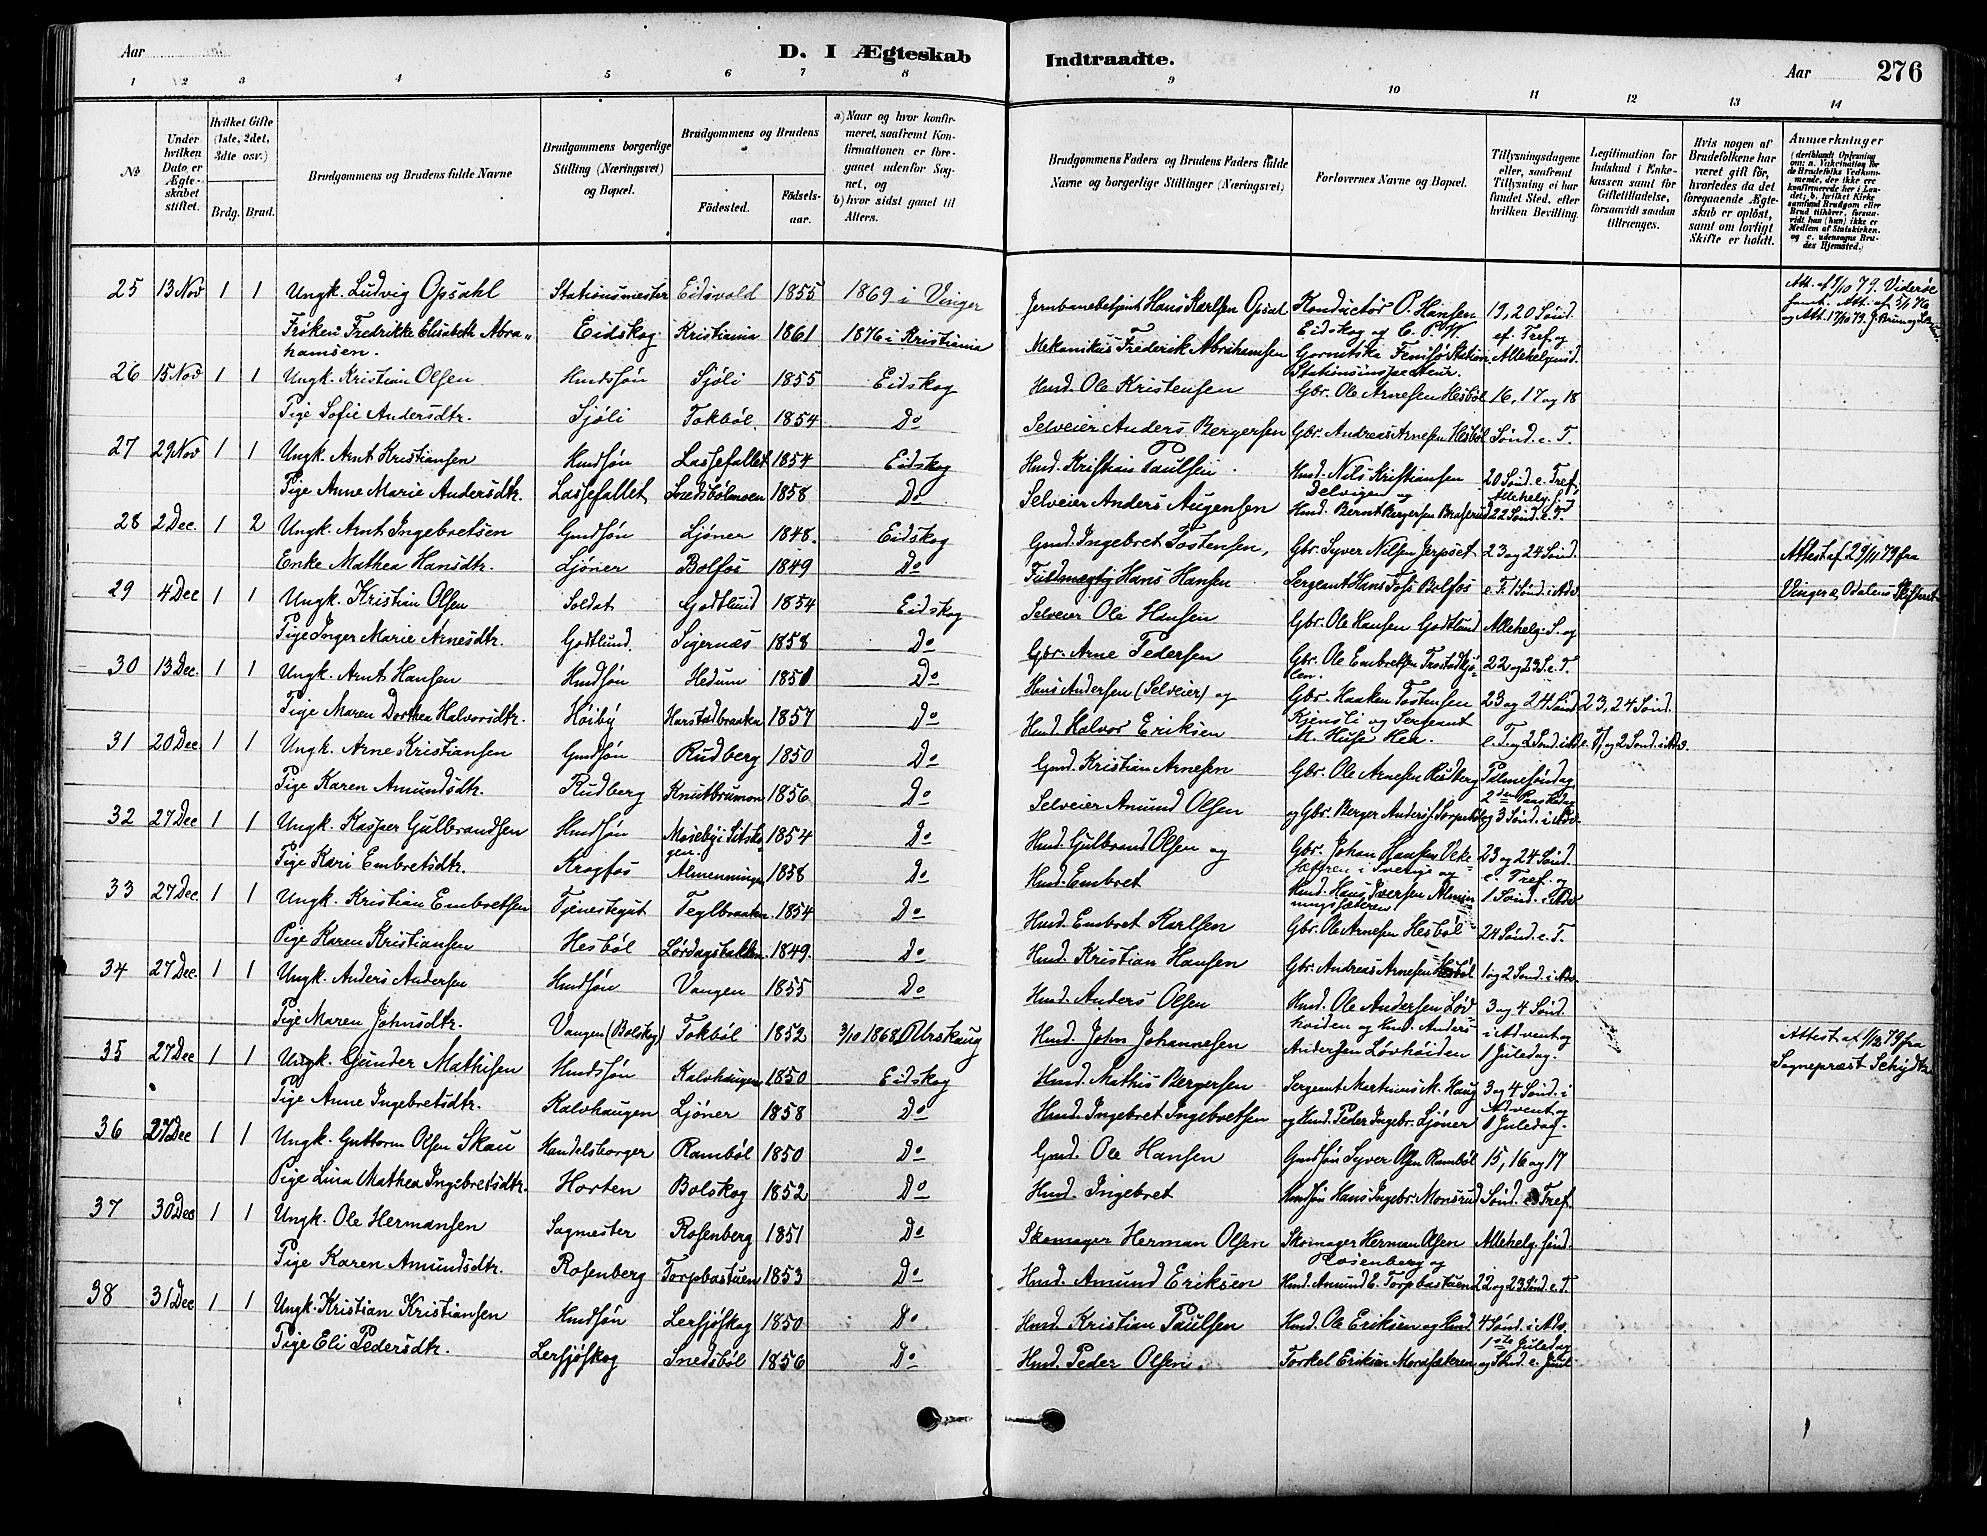 Aar
D. I Ægteskab
Indtraadte.
Aar
276
1 2 3 4 5 6 7 8 9 10 11 12 13 14
No
Under hvilken Dato er Ægteskabet stiftet.
Hvilket Gifte (1ste, 2det, 3dte osv.)
Brdg. Brud.
Brudgommens og Brudens fulde Navne
Brudgommens borgerlige Stilling (Næringsvei) og Bopæl.
Brudgommens og Brudens
Fødested.
Fødselsaar.
a) Naar og hvor konfirmeret, saafremt Konfirmationen er foregaaet udenfor Sognet, og
b) hvor sidst gaaet til Alters.
Brudgommens Faders og Brudens Faders fulde Navne og borgerlige Stillinger (Næringsvei)
Forlovernes Navne og Bopæl.
Tillysningsdagene eller, saafremt Tillysning ei har fundet Sted, efter hvilken Bevilling.
Legitimation for Indskud i Enkekassen samt for Giftetilladelse, forsaavidt saadan tiltrænges.
Hvis nogen af Brudefolkene har været gift før, hvorledes da det foregaaende Ægteskab er opløst, samt om lovligt Skifte er holdt.
Anmærkninger
25 13 Nov 1 1 Ungk. Ludvig Opsahl Stationsmester Eidsvold 1855 1869 i Vinger Jernbanebetjent Hans Karlsen Opsal Konductør P. Hansen 19, 20 Sønd.
Frøken Fredrikke Elisabeth Abrahamsen. Eidskog Kristiania 1861 1876 i Kristiania Mekanikus Frederik Abrahamsen Eidskog og ef. Tref. og Allehelgensd.
26 15 Nov 1 1 Ungk. Kristian Olsen Hmdsøn Sjøli 1855 Eidskog Hmd. Ole Kristensen Gbr. Ole Arnesen Hesbøl 16, 17 og 18
Pige Sofie Andersdtr. Sjøli Tokbøl. 1854 Do Selveier Anders Bergersen Gbr. Andreas Arnesen Hesbøl Sønd. e. T.
27 29 Nov 1 1 Ungk. Arnt Kristiansen Hmdsøn Lassefallet 1854 Eidskog Hmd. Kristian Paulsen Hmd. Nils Kristiansen 20 Sønd. e. Tref.
Pige Anne Marie Andersdtr. Lassefallet Snedsbølmoen 1858. Do Selveier Anders Augensen Hmd. Bernt Bergersen 22 Sønd. e. T.
28 2 Dec. 1 2 Ungk. Arnt Ingebretsen Gmdsøn Ljøner 1848. Eidskog Gmd. Ingebret Tostensen, Gbr. Syver Nilsen Jerpset 23 og 24 Sønd.
Enke Mathea Hansdtr. Ljøner Bolfos 1849 Do Fuldmægtig Hans Hansen Sergeant Hans Foss Bolfos e. T. 1 Sønd. i Adv. Attest af 29/11 79 fra
29 4 Dec 1 1 Ungk. Kristian Olsen Soldat Godtlund 1854 Eidskog Selveier Ole Hansen Gbr. Ole Hansen Godtlund Allehelg. S. og Vinger & Odalens Skifteret
Pige Inger Marie Arnesdtr. Godtlund. Sigernæs 1858 Do Gbr. Arne Pedersen Gbr. Ole Embretsen 22 og 23 S. e. T.
30 13 Dec. 1 1 Ungk. Arnt Hansen Hmdsøn Hedum 1851 Do Hans Andersen (Selveier) og Gbr. Haaken Tostensen 23 og 24 Sønd. 23, 24 Sønd.
Pige Maren Dorthea Halvorsdtr. Høiby Harstadbraaten 1857 Do Hmd. Halvor Eriksen Kjensli og Sergeant M. Huse Her. e. T. og 2 Sønd. i Adv.
31 20 Dec 1 1 Ungk. Arne Kristiansen Gmdsøn Rudberg 1850 Do Gmd. Kristian Arnesen Gbr. Ole Arnesen Rudberg Palmesøndag
Pige Karen Amundsdtr. Rudberg Knutbrumon 1856 Do Selveier Amund Olsen og Gbr. Berger Anders. 2den Paaskedag og 3 Sønd. i Adv.
32 27 Dec 1 1 Ungk. Kasper Gulbrandsen Hmdsøn Mosebyi Sitskogen 1854 Do Hmd. Gulbrand Olsen og Gbr. Johan Hansen 23 og 24 Sønd.
Pige Kari Embretsdtr. Krogfos Almenningen 1858 Do Hmd. Embret Hmd. Hans Iversen e. Tref. og 1 Sønd. i Adv
33 27 Dec. 1 1 Ungk. Kristian Embretsen Tjenestegut Teglbraaten 1854 Do Hmd. Embret Karlsen Gbr. Ole Arnesen Hesbøl 24 Sønd. e. T.
Pige Karen Kristiansen Hesbøl Lørdagsbakken. 1849. Do Hmd. Kristian Hansen Gbr. Andreas Arnesen Hesbøl 1 og 2 Sønd. i Adv.
34 27 Dec. 1 1 Ungk. Anders Andersen Hmdsøn Vangen 1855 Do Hmd. Anders Olsen Hmd. Ole Andersen Løv- 3 og 4 Sønd.
Pige Maren Johnsdtr. Vangen (Bolskog) Tokbøl 1852 3/10 1868 Urskaug Hmd. John Johannesen høiden og Hmd. Anders Andersen Løvhøiden i Advent og 1 Juledag. Attest af 1/12 79 fra
35 27 Dec 1 1 Ungk. Gunder Mathisen Hmdsøn Kalvhaugen 1850 Eidskog Hmd. Mathis Bergersen Sergeant Martinius M. Haug 3 og 4 Sønd. i Sogneprest Schydtz
Pige Anne Ingebretsdtr. Kalvhaugen Ljøner 1858 Do Hmd. Ingebret Ingebretsen og Hmd. Peder Ingebr. Ljøner Advent og 1 Juledag.
36 27 Dec 1 1 Ungk. Guttorm Olsen Skau Handelsborger Rambøl 1850 Do Gmd. Ole Hansen Gmdsøn Syver Olsen Rambøl 15, 16 og 17
Pige Lina Mathea Ingebretsdtr. Horten Bolskog 1852 Do Hmd. Ingebret Hmdsøn Hans Ingebr. Monsrud Sønd. e. Tref.
37 30 Dec 1 1 Ungk. Ole Hermansen Sagmester Rosenberg 1851 Do Skomager Herman Olsen Skomager Herman Olsen Allehelg. sønd.
Pige Karen Amundsdtr. Rosenberg Torpbastuen 1853 Do Hmd. Amund Eriksen Rosenberg og Hmd. Amund E. Torpbastuen 22 og 23 Sønd. e. T.
38 31 Dec 1 1 Ungk. Kristian Kristiansen Hmdsøn Lersjøskog 1850 Do Hmd. Kristian Paulsen Hmd. Ole Eriksen og Hmd. 4 Sønd. i Adv.
Pige Eli Pedersdtr. Lersjøskog Snedsbøl 1856 Do Hmd. Peder Olsen. Torkel Eriksen 1ste Juledag og Sønd. e. Juul